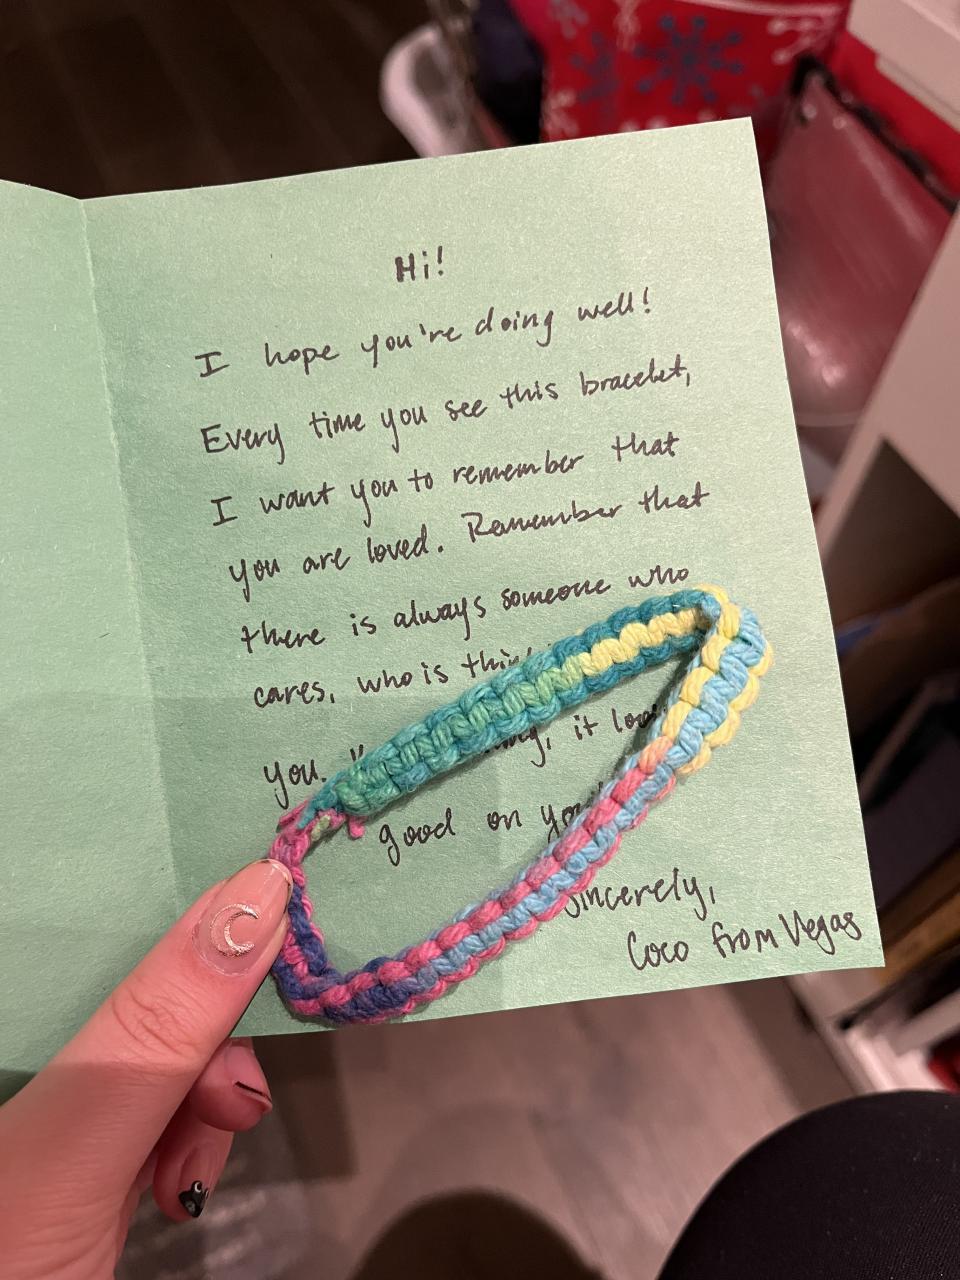 Hi!
I hope you're doing well!
Every time you see this bracelet,
I want you to remember that
you are loved. Remember that
there is always someone who
cares, who is
you. it
good on you
Sincerely,
Coco from Vegas